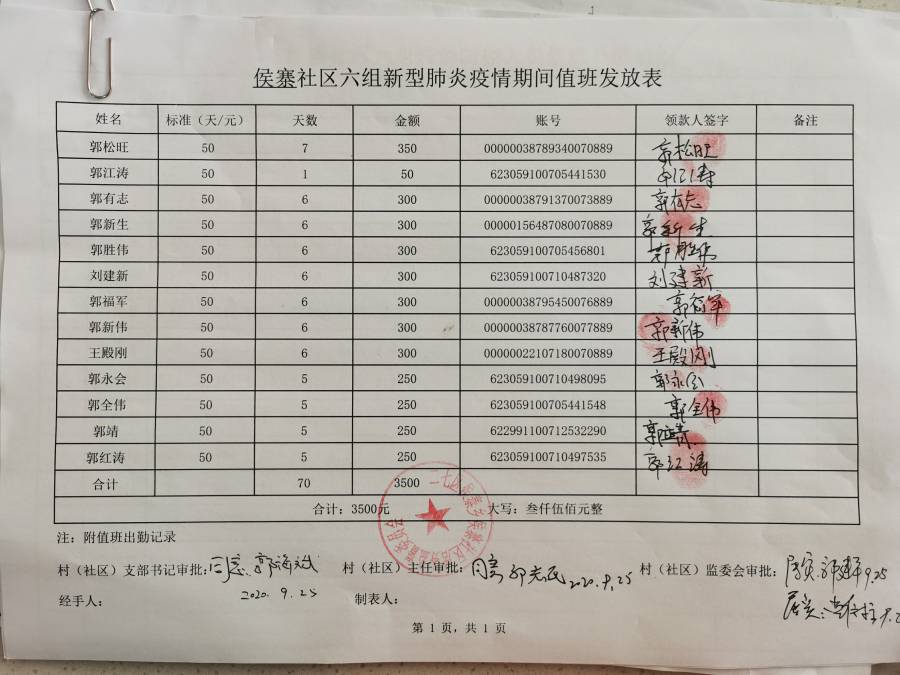 侯寨社区六组新型肺炎疫情期间值班发放表
姓名 标准（天/元） 天数 金额 账号 领款人签字 备注
郭松旺 50 7 350 00000038789340070889 郭松旺
郭江涛 50 1 50 623059100705441530
郭有志 50 6 300 00000038791370073889 郭有志
郭新生 50 6 300 00000156487080070889 郭新生
郭胜伟 50 6 300 623059100705456801 郭胜伟
刘建新 50 6 300 623059100710487320 刘建新
郭福军 50 6 300 00000038795450076889 郭福军
郭新伟 50 6 300 00000038787760077889 郭新伟
王殿刚 50 6 300 00000022107180070889 王殿刚
郭永会 50 5 250 623059100710498095 郭永会
郭全伟 50 5 250 623059100705441548 郭全伟
郭靖 50 5 250 622991100712532290 郭靖
郭红涛 50 5 250 623059100710497535 郭红涛
合计 70 3500
合计：3500元 大写：叁仟伍佰元整
注：附值班出勤记录
村（社区）支部书记审批： 村（社区）主任审批： 2020.9.25 村（社区）监委会审批： 9.25
经手人： 2020.9.25 制表人：
第 1 页，共 1 页